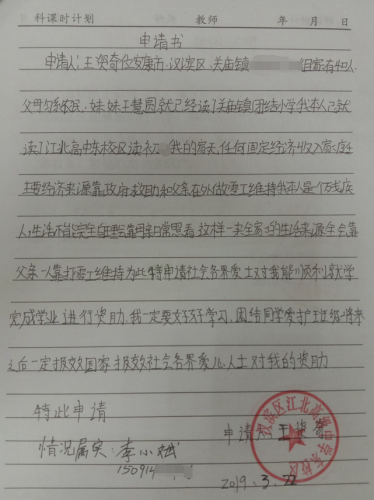 科课时计划 教师 年 月 日
申请书
申请人:王贤奇位安康市,汉滨区,关庙镇 组家有4口人
父母均系农民,妹妹王慧圆就已经读了关庙镇团结小学我本人已就
读了江北高中东校区读初 我的家无任何固定经济收入家庭
主要经济来源靠政府救助和父亲在外做零工维持我本人是个残疾
人,生活不能完全自理靠母亲日常照看这样一来全家的生活来源全靠
父亲一人靠打零工维持为此特申请社会各界爱士对我能顺利就学
完成学业进行资助,我一定要好好学习,团结同学爱护班级将来
之后一定报效国家报效社会各界爱心人士对我的资助
特此申请
申请人 王贤奇
情况属实:李小斌
150914
2019.3.22
汉滨区江北高级中学东校区